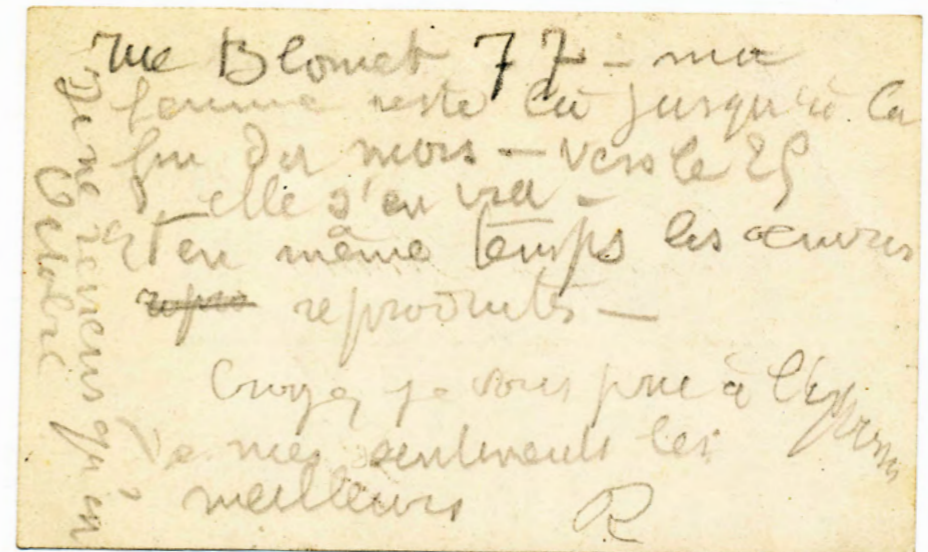 rue Blomet 77 - ma
femme reste là jusqu'à la
fin du mois — vers le 25
elle s'en va -
Et en même temps les œuvres
repro reproduites —
Croyez je vous prie à l'expression
de mes sentiments les
meilleurs R
Je ne reviens qu'en
Octobre